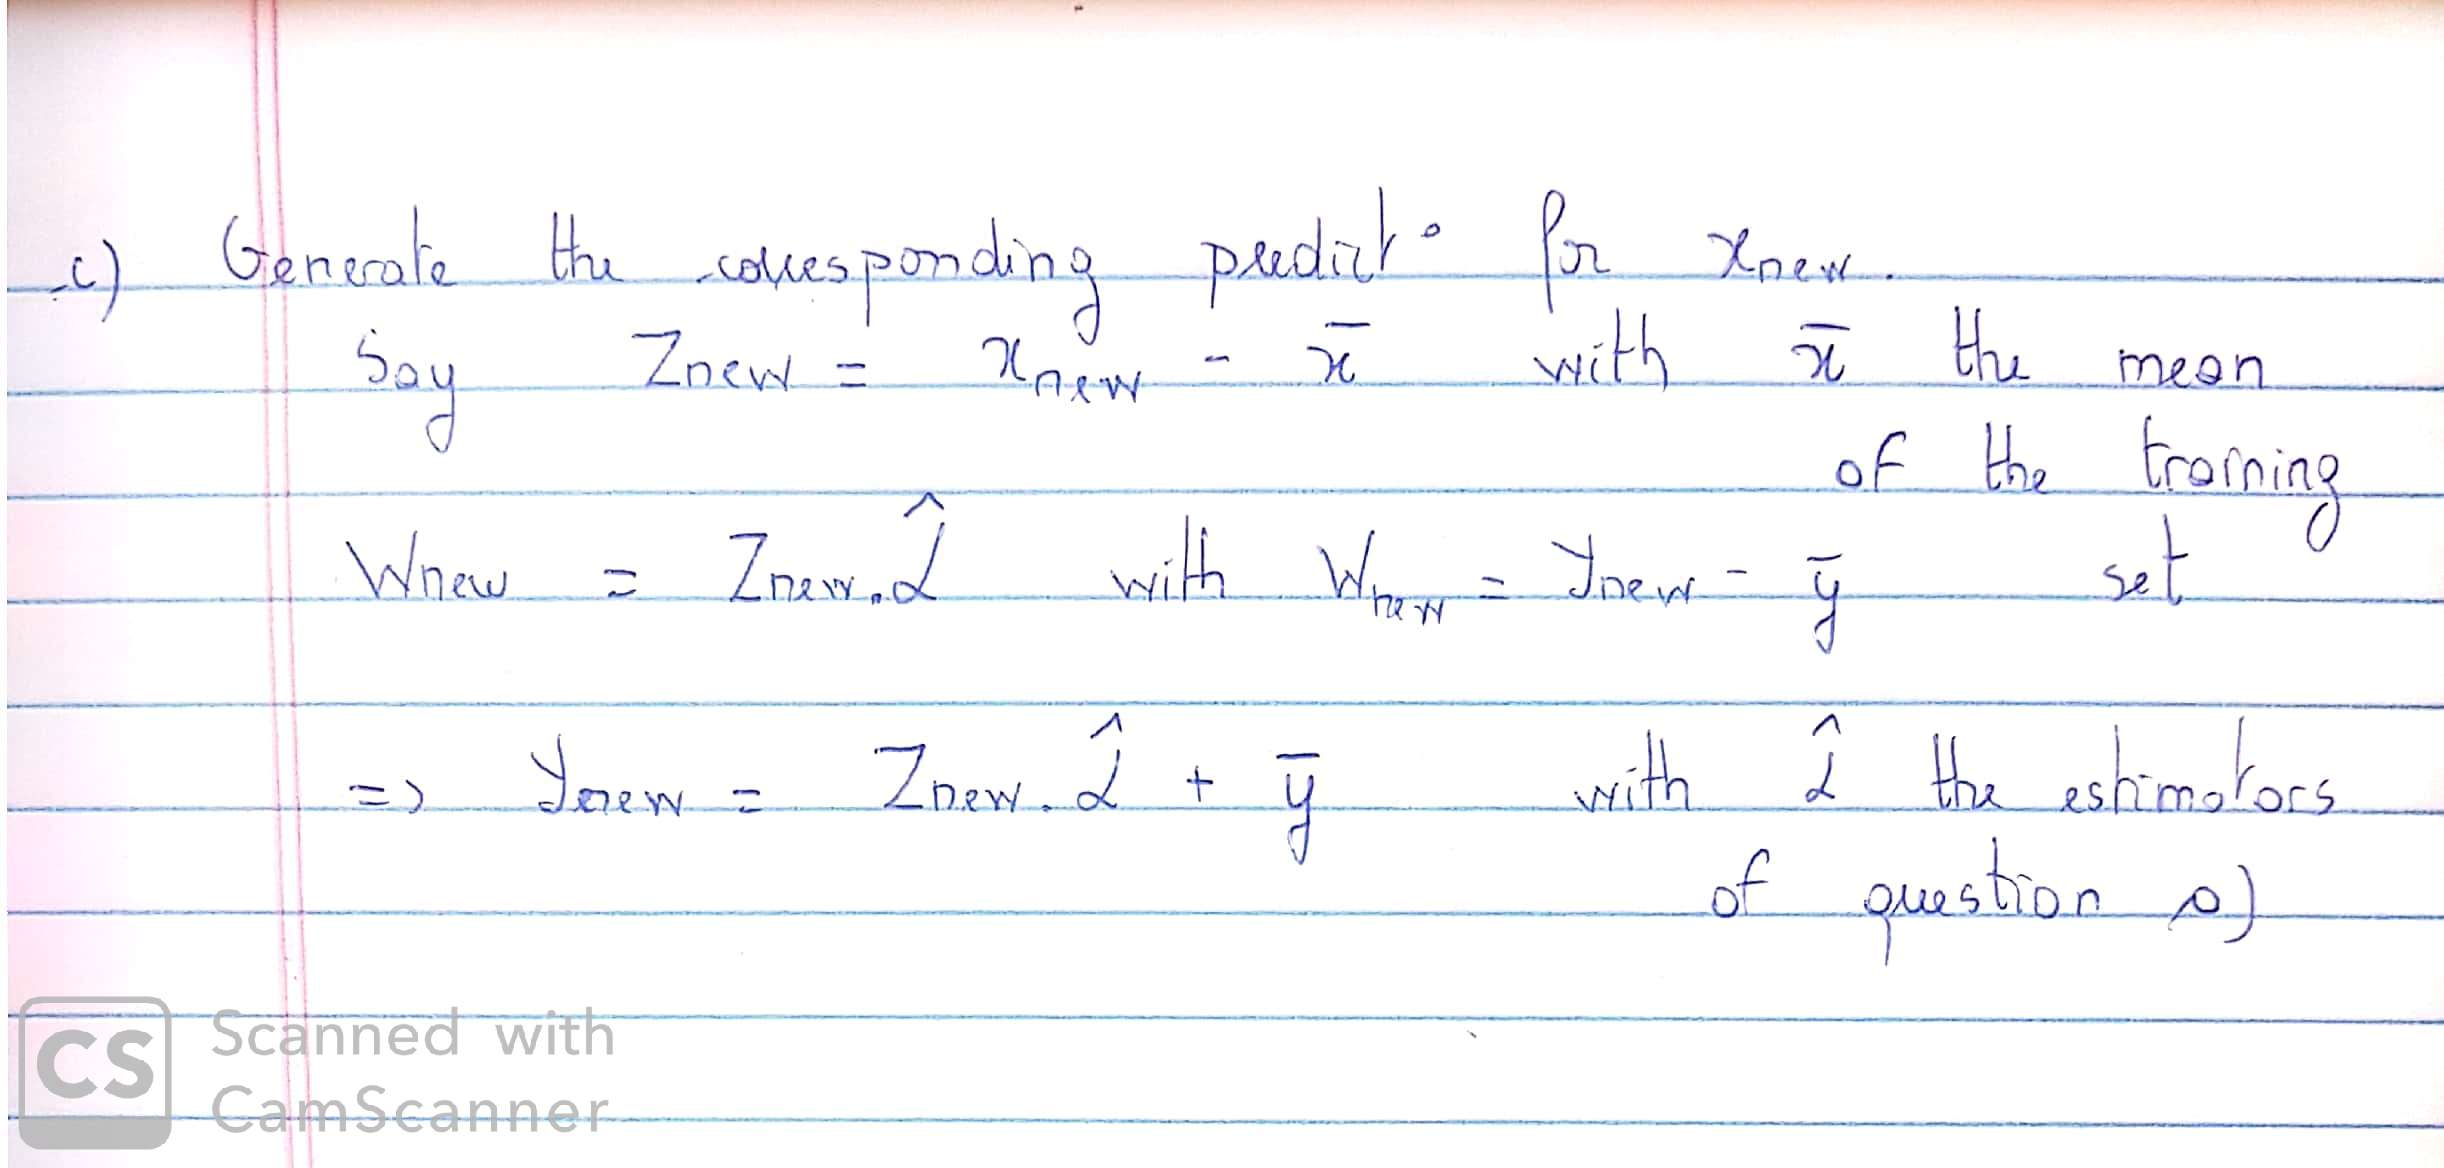 c) Generate the corresponding predict° for xnew.
Say Znew = xnew - x̄ with x̄ the mean
of the training
Wnew = Znew.α̂ with Wnew = Ynew - ȳ set
=> Ynew = Znew.α̂ + ȳ with α̂ the estimators
of question a)
CS Scanned with
CamScanner